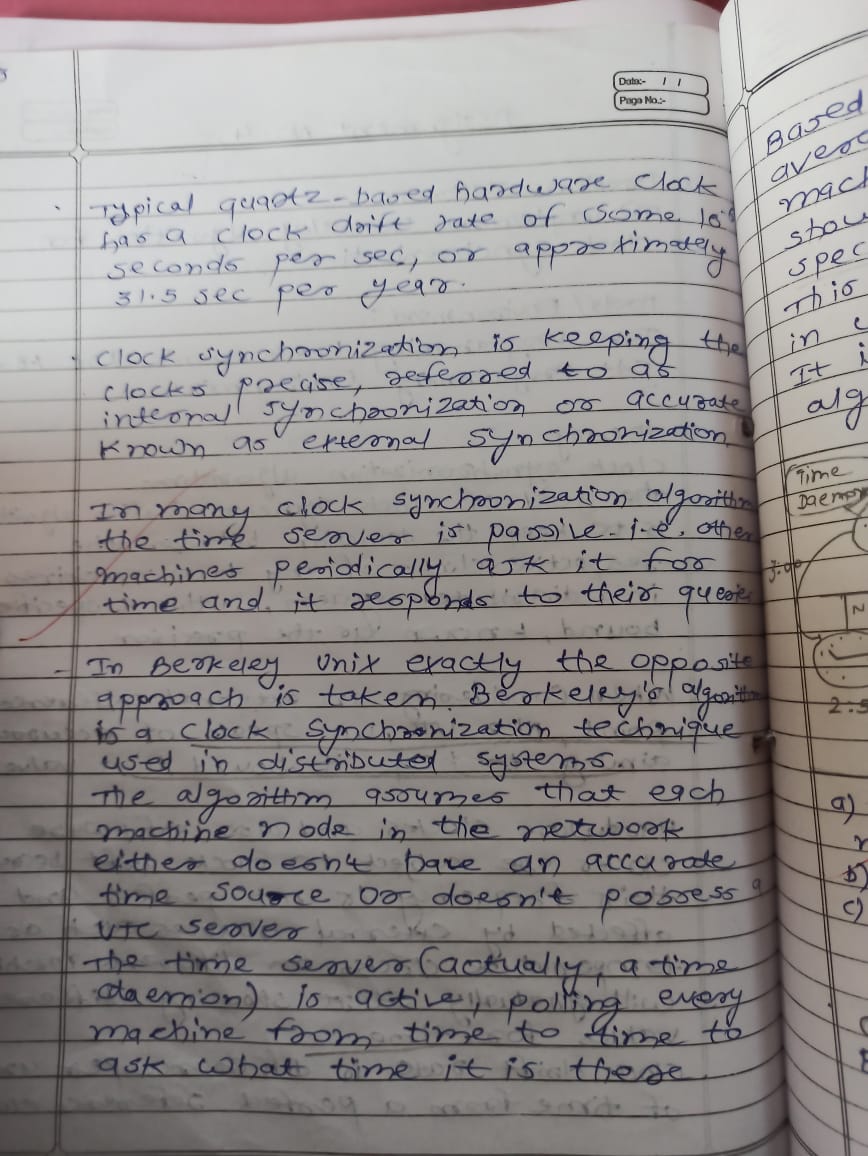 Date:- / /
Page No.:-
Typical quartz-based hardware clock
has a clock drift rate of some 10
seconds per sec, or approximately
31.5 sec per year.
clock synchronization is keeping the
clocks precise, referred to as
internal synchronization or accurate
known as external synchronization
In many clock synchronization algorithm
the time server is passive. i.e. other
machines periodically ask it for
time and it responds to their
- In Berkeley Unix exactly the opposite
approach is taken. Berkeley's algorithm
is a clock synchronization technique
used in distributed systems.
The algorithm assumes that each
machine node in the network
either doesn't have an accurate
time source or doesn't possess a
UTC server
The time server (actually, a time
daemon) is active, polling every
machine from time to time to
ask what time it is there.
Based
mach
spec
This
in
It
alg
Time
Daemon
3:00
a)
b)
c)